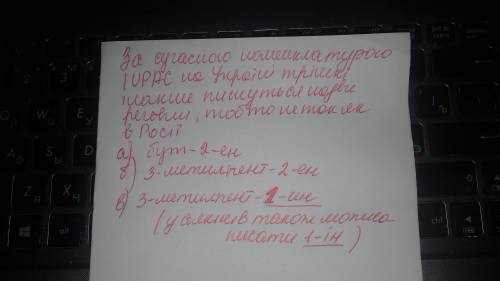 За сучасною номенклатурою
IUPAC на Україні трішки
інакше пишуться назви
речовин, тобто не так як
в Росії
а) бут-2-ен
б) 3-метилпент-2-ен
в) 3-метилпент-1-ин
(у алкінів також можна
писати 1-ін)